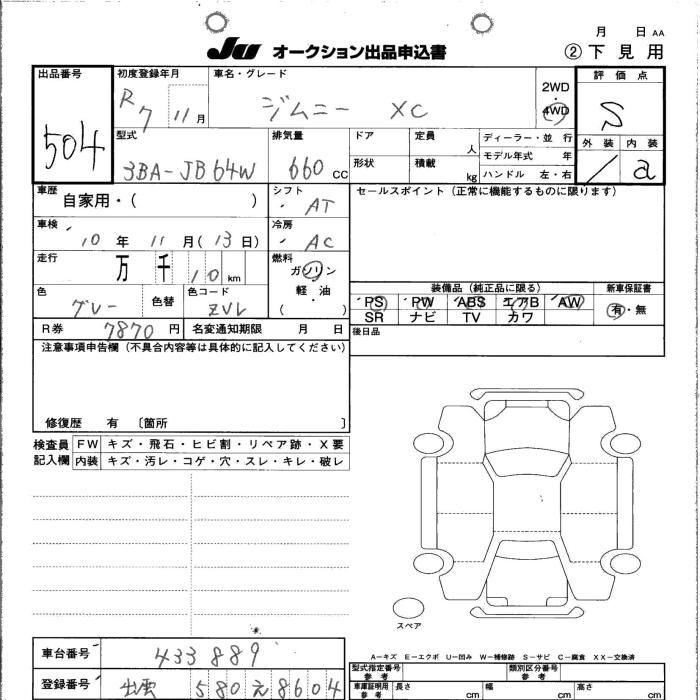 月 日 AA
JU オークション出品申込書 ② 下見用
出品番号 504
初度登録年月 R7 11月
車名・グレード ジムニー XC
2WD・4WD
評価点 S
外装 / 内装 a
型式 3BA-JB64W
排気量 660 CC
ドア 形状
定員 人
積載 kg
ディーラー・並行
モデル年式 年
ハンドル 左・右
車歴 自家用・( )
シフト AT
セールスポイント(正常に機能するものに限ります)
車検 10年 11月(13日)
冷房 AC
走行 万 千 10 km
燃料 ガソリン・軽油 ( )
色 グレー 色替 色コード ZVL
装備品(純正品に限る) 新車保証書
PS PW ABS エアB AW 有・無
SR ナビ TV カワ
R券 7870円 名変通知期限 月 日
後日品
注意事項申告欄(不具合内容等は具体的に記入してください)
修復歴 有 〔箇所 〕
検査員記入欄
FW キズ・飛石・ヒビ割・リペア跡・X要
内装 キズ・汚レ・コゲ・穴・スレ・キレ・破レ
スペア
A-キズ E-エクボ U-凹み W-補修跡 S-サビ C-腐食 XX-交換済
車台番号 433889
型式指定番号 参考
類別区分番号 参考
登録番号 出雲 580 え 8604
車庫証明用 参考 長さ cm 幅 cm 高さ cm